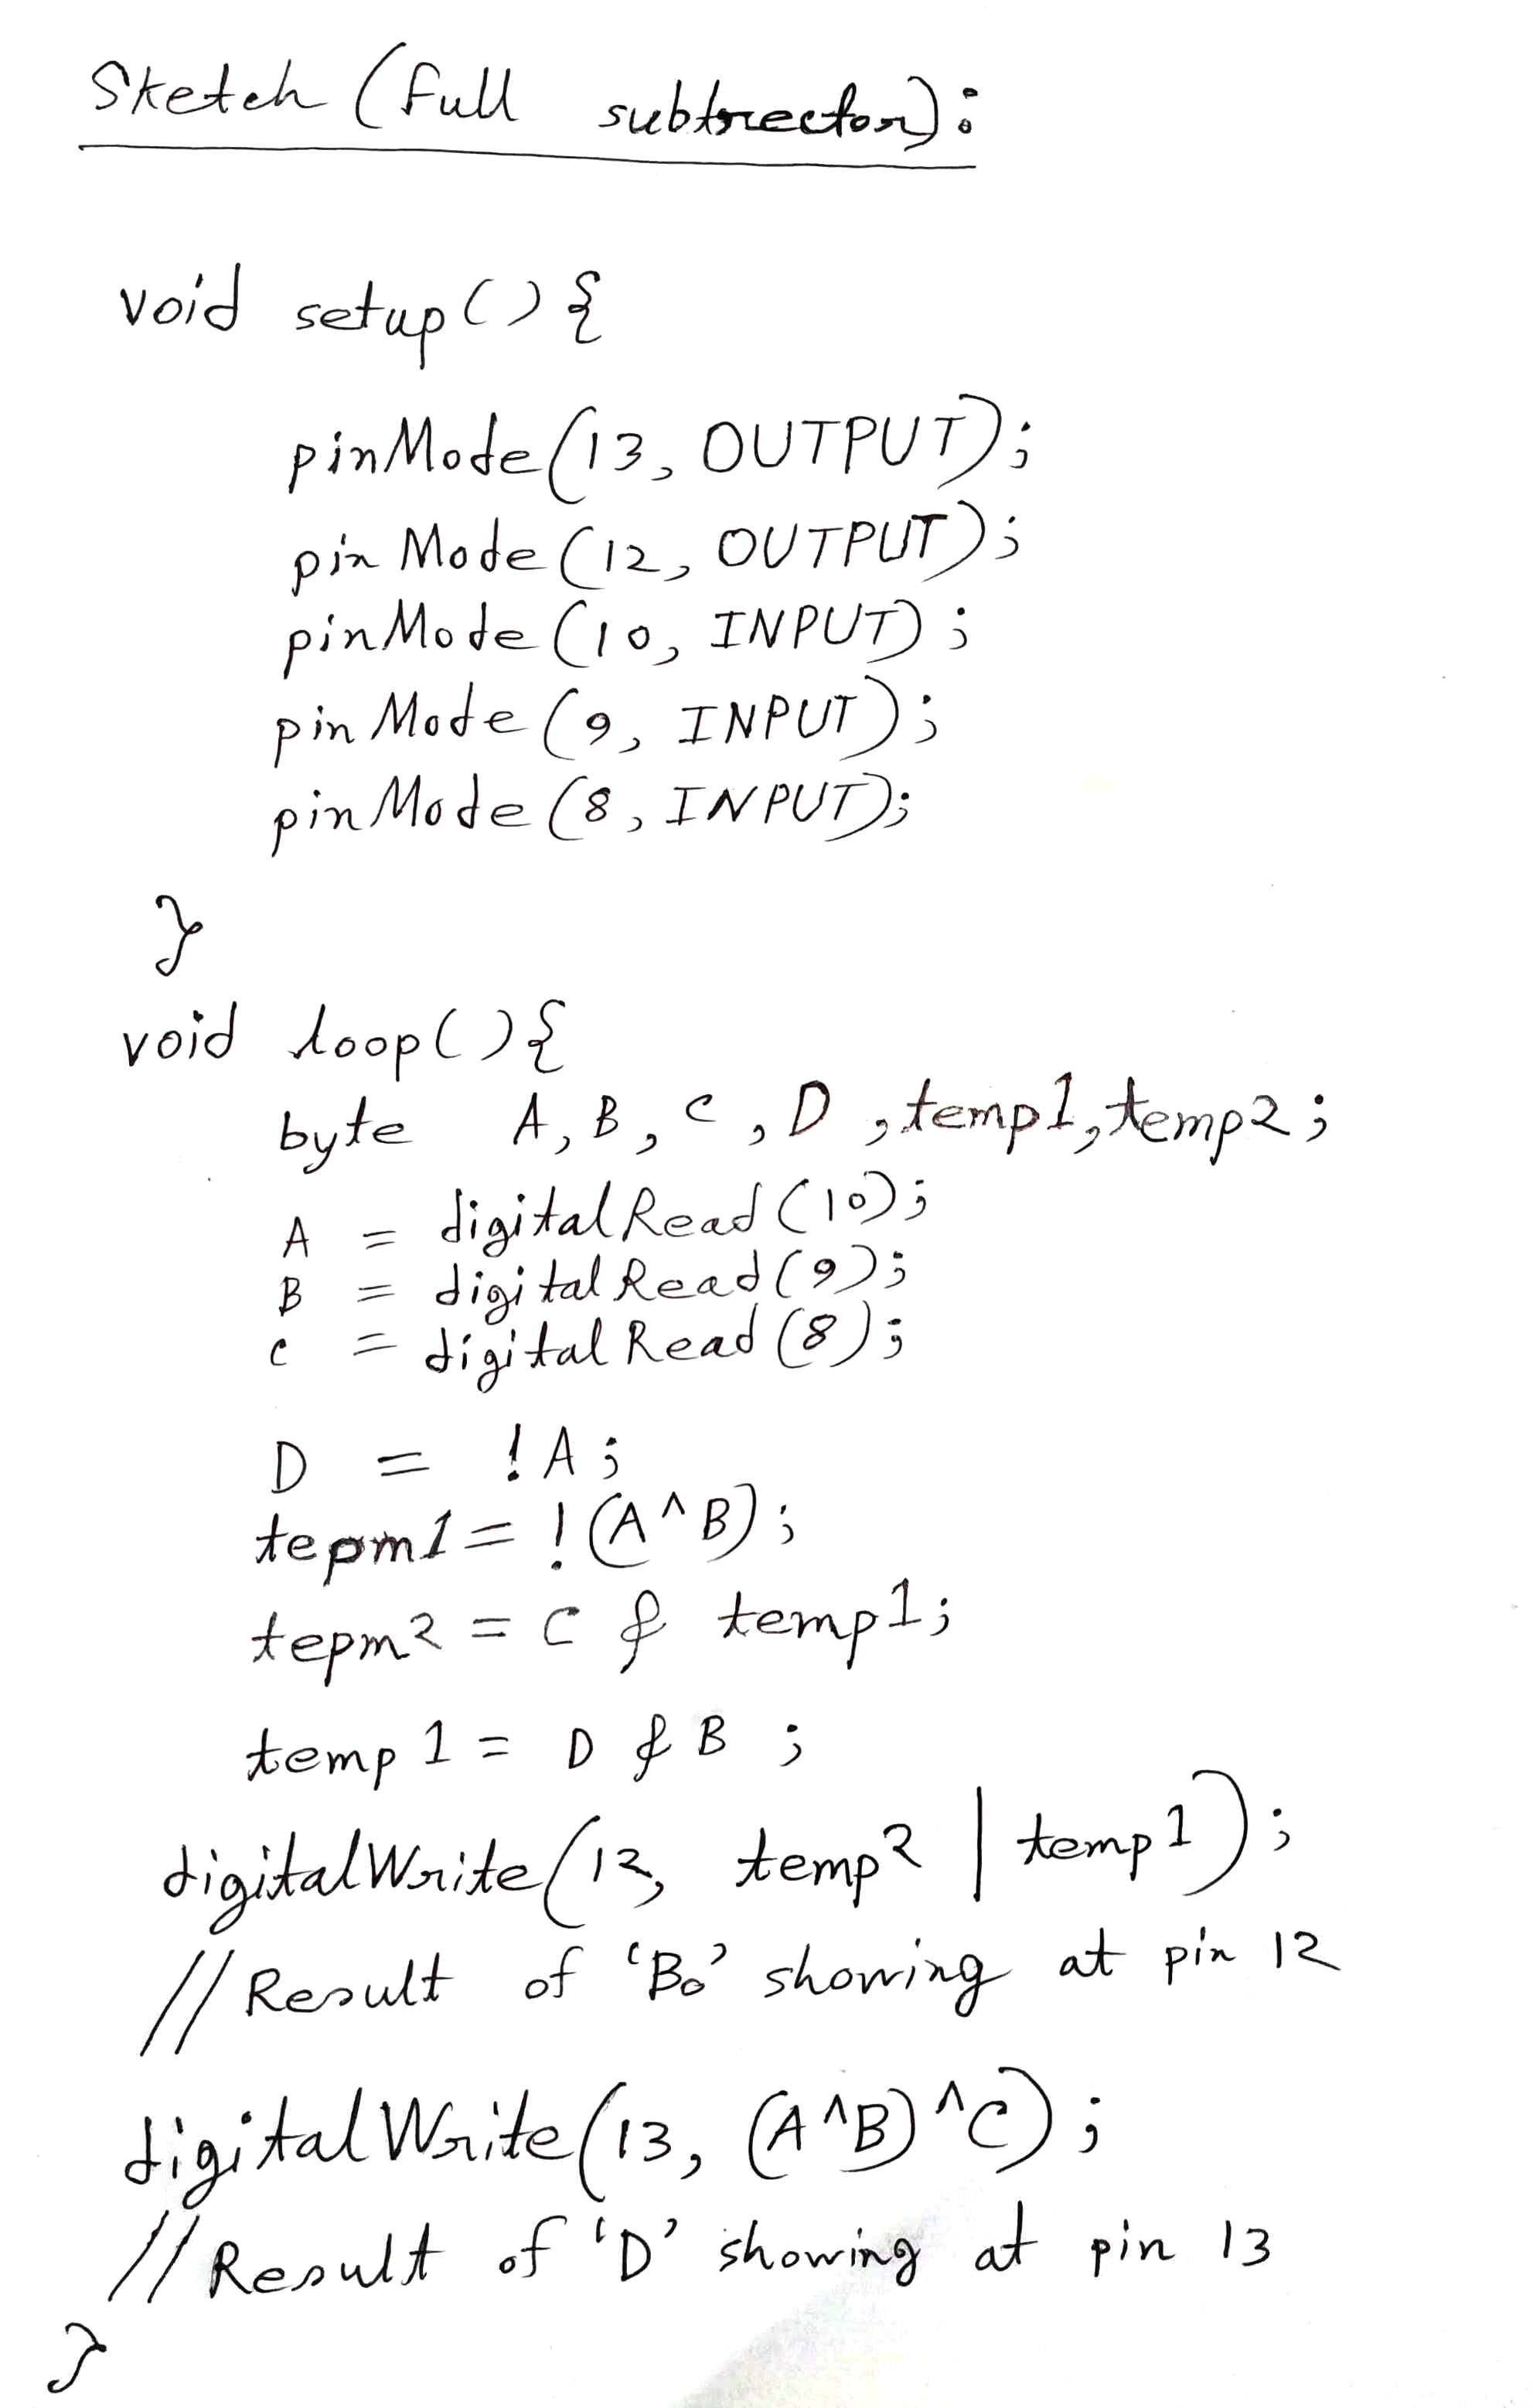 Sketch (full subtrector):
void setup() {
pinMode(13, OUTPUT);
pinMode(12, OUTPUT);
pinMode(10, INPUT);
pinMode(9, INPUT);
pinMode(8, INPUT);
}
void loop() {
byte A, B, C, D, temp1, temp2;
A = digitalRead(10);
B = digitalRead(9);
C = digitalRead(8);
D = !A;
tepm1 = !(A^B);
tepm2 = C & temp1;
temp1 = D & B;
digitalWrite(12, temp2 | temp1);
// Result of 'Bo' showing at pin 12
digitalWrite(13, (A^B)^C);
// Result of 'D' showing at pin 13
}